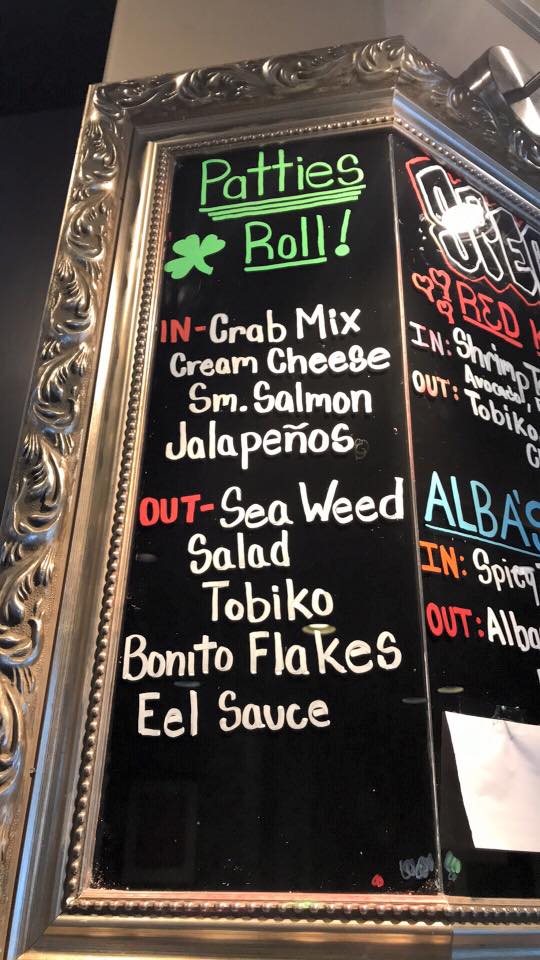 Patties
Roll!
IN-Crab Mix
Cream Cheese
Sm. Salmon
Jalapeños
OUT-Sea Weed
Salad
Tobiko
Bonito Flakes
Eel Sauce
RED
IN: Shrimp
Avocado,
OUT: Tobiko
ALBA'S
IN: Spicy
OUT: